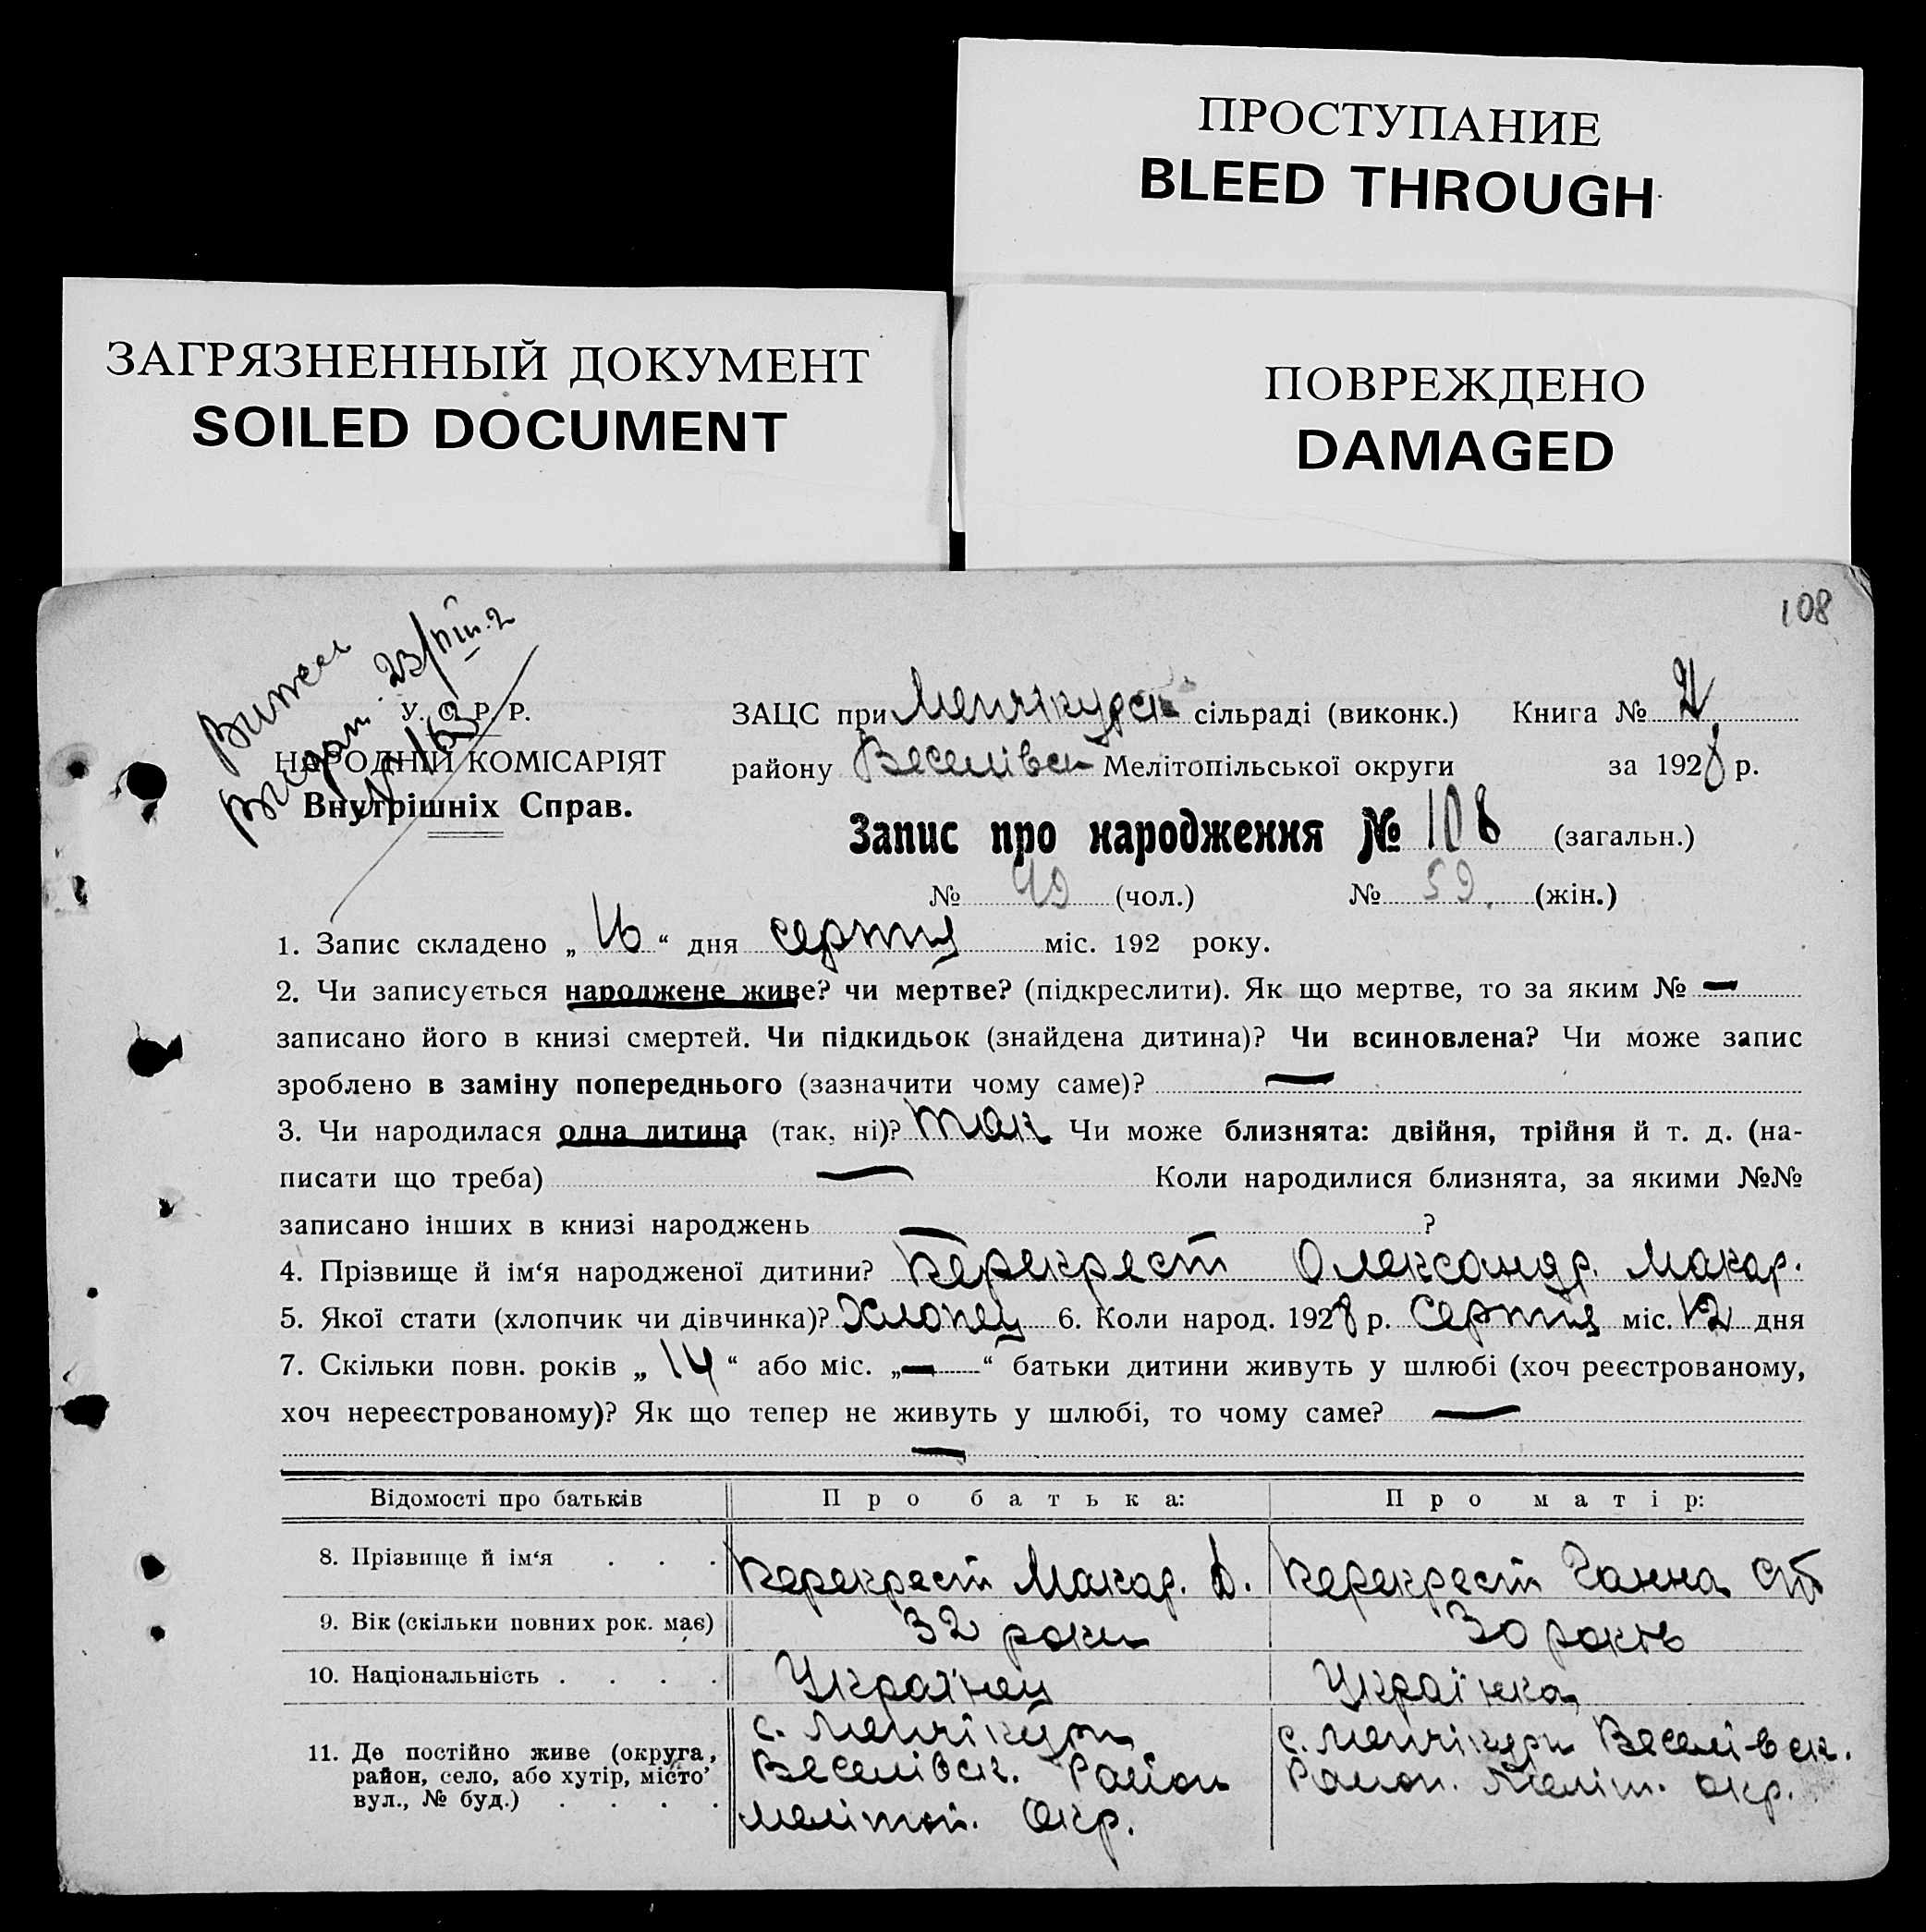 ПРОСТУПАНИЕ
BLEED THROUGH
ЗАГРЯЗНЕННЫЙ ДОКУМЕНТ
SOILED DOCUMENT
ПОВРЕЖДЕНО
DAMAGED
108
У. С. Р. Р.
НАРОДНІЙ КОМІСАРІЯТ
Внутрішніх Справ.
ЗАЦС при Менчікурск сільраді (виконк.) Книга №
району Веселівск Мелітопільської округи за 1928 р.
Запис про народження № 108 (загальн.)
№ 49 (чол.) № 59. (жін.)
1. Запис складено „ 16 “ дня серпня міс. 192 року.
2. Чи записується народжене живе? чи мертве? (підкреслити). Як що мертве, то за яким № —
записано його в книзі смертей. Чи підкидьок (знайдена дитина)? Чи всиновлена? Чи може запис
зроблено в заміну попереднього (зазначити чому саме)? —
3. Чи народилася одна дитина (так, ні)? так Чи може близнята: двійня, трійня й т. д. (на-
писати що треба) — Коли народилися близнята, за якими №№
записано інших в книзі народжень — ?
4. Прізвище й ім‘я народженої дитини? Перекрест Олександр. Макар.
5. Якої стати (хлопчик чи дівчинка)? Хлопец 6. Коли народ. 1928 р. Серпня міс. 12 дня
7. Скільки повн. років „ 14 “ або міс. „ — “ батьки дитини живуть у шлюбі (хоч реєстрованому,
хоч нереєстрованому)? Як що тепер не живуть у шлюбі, то чому саме? —
—
Відомості про батьків Про батька: Про матір:
8. Прізвище й ім‘я . . . Перекрест Макар. Перекрест Ганна
9. Вік (скільки повних рок. має) 32 роки 30 років
10. Національність . . . . Українец Українка
11. Де постійно живе (округа,
район, село, або хутір, місто’
вул., № буд.) . . . .
с. Менчікури
Веселівск. Район
Мелітоп. Окр.
с. Менчікури Веселівск.
Район. Меліт. окр.